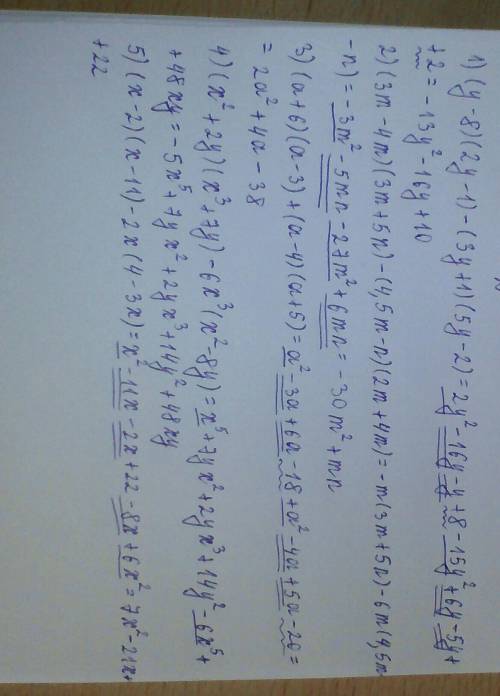 1) (y-8)(2y-1)-(3y+1)(5y-2)=2y²-16y-y+8-15y²+6y-5y+
+2=-13y²-16y+10
2) (3m-4m)(3m+5n)-(4,5m-n)(2m+4m)=-m(3m+5n)-6m(4,5m-
-n)=-3m²-5mn-27m²+6mn=-30m²+mn
3) (a+6)(a-3)+(a-4)(a+5)=a²-3a+6a-18+a²-4a+5a-20=
=2a²+4a-38
4) (x²+2y)(x³+7y)-6x³(x²-8y)=x⁵+7yx²+2yx³+14y²-6x⁵+
+48xy=-5x⁵+7yx²+2yx³+14y²+48xy
5) (x-2)(x-11)-2x(4-3x)=x²-11x-2x+22-8x+6x²=7x²-21x+
+22